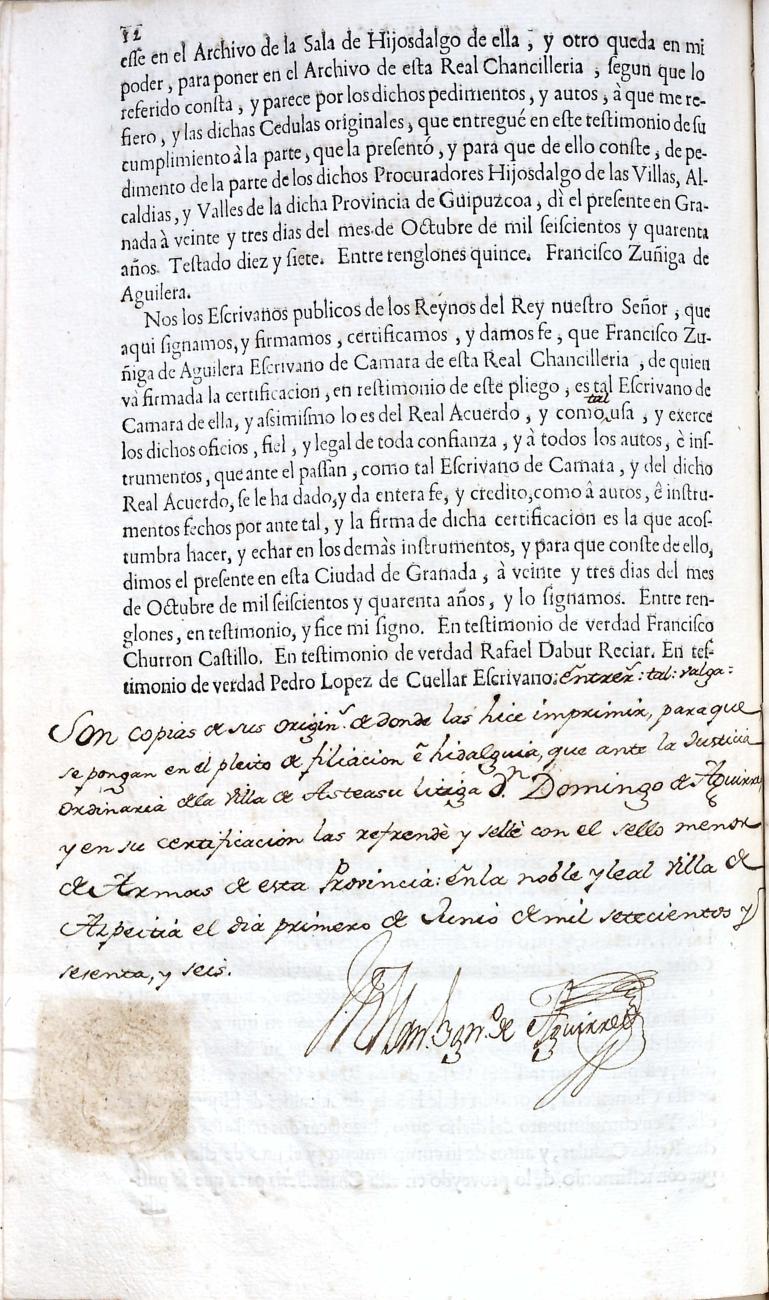 12
esse en el Archivo de la Sala de Hijosdalgo de ella, y otro queda en mi
poder, para poner en el Archivo de esta Real Chancilleria, segun que lo
referido consta, y parece por los dichos pedimentos, y autos, à que me re-
fiero, y las dichas Cedulas originales, que entregué en este testimonio de su
cumplimiento à la parte, que la presentó, y para que de ello conste, de pe-
dimento de la parte de los dichos Procuradores Hijosdalgo de las Villas, Al-
caldias, y Valles de la dicha Provincia de Guipuzcoa, dì el presente en Gra-
nada à veinte y tres dias del mes de Octubre de mil seiscientos y quarenta
años. Testado diez y siete. Entre renglones quince. Francisco Zuñiga de
Aguilera.
Nos los Escrivanos publicos de los Reynos del Rey nuestro Señor, que
aqui signamos, y firmamos, certificamos, y damos fe, que Francisco Zu-
ñiga de Aguilera Escrivano de Camara de esta Real Chancilleria, de quien
và firmada la certificacion, en testimonio de este pliego, es tal Escrivano de
Camara de ella, y assimismo lo es del Real Acuerdo, y como tal usa, y exerce
los dichos oficios, fiel, y legal de toda confianza, y à todos los autos, è ins-
trumentos, que ante el passan, como tal Escrivano de Camara, y del dicho
Real Acuerdo, se le ha dado, y da entera fe, y credito, como â autos, ê instru-
mentos fechos por ante tal, y la firma de dicha certificacion es la que acos-
tumbra hacer, y echar en los demàs instrumentos, y para que conste de ello,
dimos el presente en esta Ciudad de Granada, à veinte y tres dias del mes
de Octubre de mil seiscientos y quarenta años, y lo signamos. Entre ren-
glones, en testimonio, y fice mi signo. En testimonio de verdad Francisco
Churron Castillo. En testimonio de verdad Rafael Dabur Reciar. En tes-
timonio de verdad Pedro Lopez de Cuellar Escrivano: Entrerr.s: tal: valga:
Son copias de sus origin.s de donde las hice imprimir, para que
se pongan en el pleito de filiacion ê hidalguia, que ante la Justicia
ordinaria dela Villa de Asteasu litiga D.n Domingo de Aguirre,
y en su certificacion las refrendè y sellè con el sello menor
de Armas de esta Provincia: En la noble y leal Villa de
Azpeitia el dia primero de Junio de mil setecientos y
sesenta, y seis.
de Aguirre